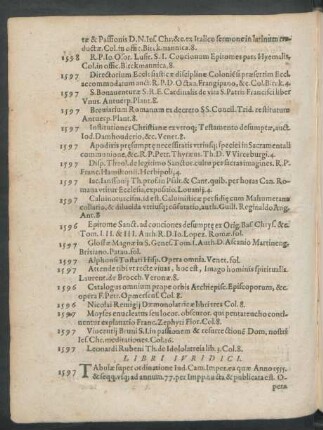 tæ & Passionis D.N. Ies. Chr. &c. ex Italico sermone in latinum tra-
ductæ. Col. in offic. Birckmannica. 8.
1598 R.P. Io. Osor. Lusit. S.I. Concionum Epitomes pars Hyemalis.
Col. in offic. Birckmannica. 8.
1597 Directorium Ecclesiasticæ disciplinæ Coloniensi præsertim Eccl.
accommodatum auct. R.P.D. Octa. Frangipano, &c. Col. Birckm. 8
1597 S. Bonauenturæ S.R.E. Cardinalis de vita S. Patris Francisci liber
Vnus. Antuerp. Plant.
1597 Breuiarium Romanum ex decreto SS. Concil. Trid. restitutum
Antuerp. Plant. 8.
1597 Institutiones Christianæ ex vet. & nou. Testamento desumptæ, auct.
Iod. Damhouderio, &c. Venet. 8.
1597 Apodixis presumptæ necessitatis vtriusq; speciei in Sacramentali
communione, &c. R.P. Petr. Thyræi. Th. D. Vvirceburgi. 4.
1597 Disp. Theol. de legitimo Sanctor. cultu per sacras imagines, R.P.
Franc. Hamstonii. Herbipoli. 4.
1597
mana vtitur Ecclesia, expositio. Louanii. 4.
1597 Caluinoturcismus. id est, Caluinisticæ perfidiæ cum Mahometana
collatio, & dilucida vtriusq; confutatio, auth. Guill. Reginaldo Ang.
Ant. 8
1596 Epitome Sanct. ad conciones desumptæ ex Orig. Bas. Chrys. &c.
Tom. I. II. & III. Auth. R.D. Io. Lopez. Romæ. fol.
1597 Glossæ Magnæ in S. Genes. Tom. I. Auth. D. Ascanio Martineng.
Brixiano. Patau. fol.
1597 Alphonsi Tostati Hisp. Opera omnia. Venet. fol.
1597 Attende tibi vt recte viuas, hoc est, Imago hominis spiritualis.
Laurent. de Broech. Veronæ. 8.
1596 Catalogus omnium prope orbis Archiepisc. Episcoporum, &c.
opera F. Petr. Opmersens. Col. 8.
1596 Nicolai Remigii Dæmonolatriæ libri tres Col. 8.
1597 Moyses enucleatus seu locor. obscutor. qui pentateucho conti-
nentur explanatio Franc. Zephyri Flor. Col. 8.
1597 Vincentij Bruni S.I. in passionem & resurrectionē Dom. nostri
Ies. Chr. meditationes. Col. 16.
1597 Leonardi Rubeni Th. de Idololatreia lib. 3. Col. 8.
LIBRI IVRIDICI.
1597 Tabulæ super ordinatione Iud. Cam. Imper. ea quæ Anno 1555.
& seqq. vsq; ad annum. 77. per Imp. aucta & publicata est. O-
pera